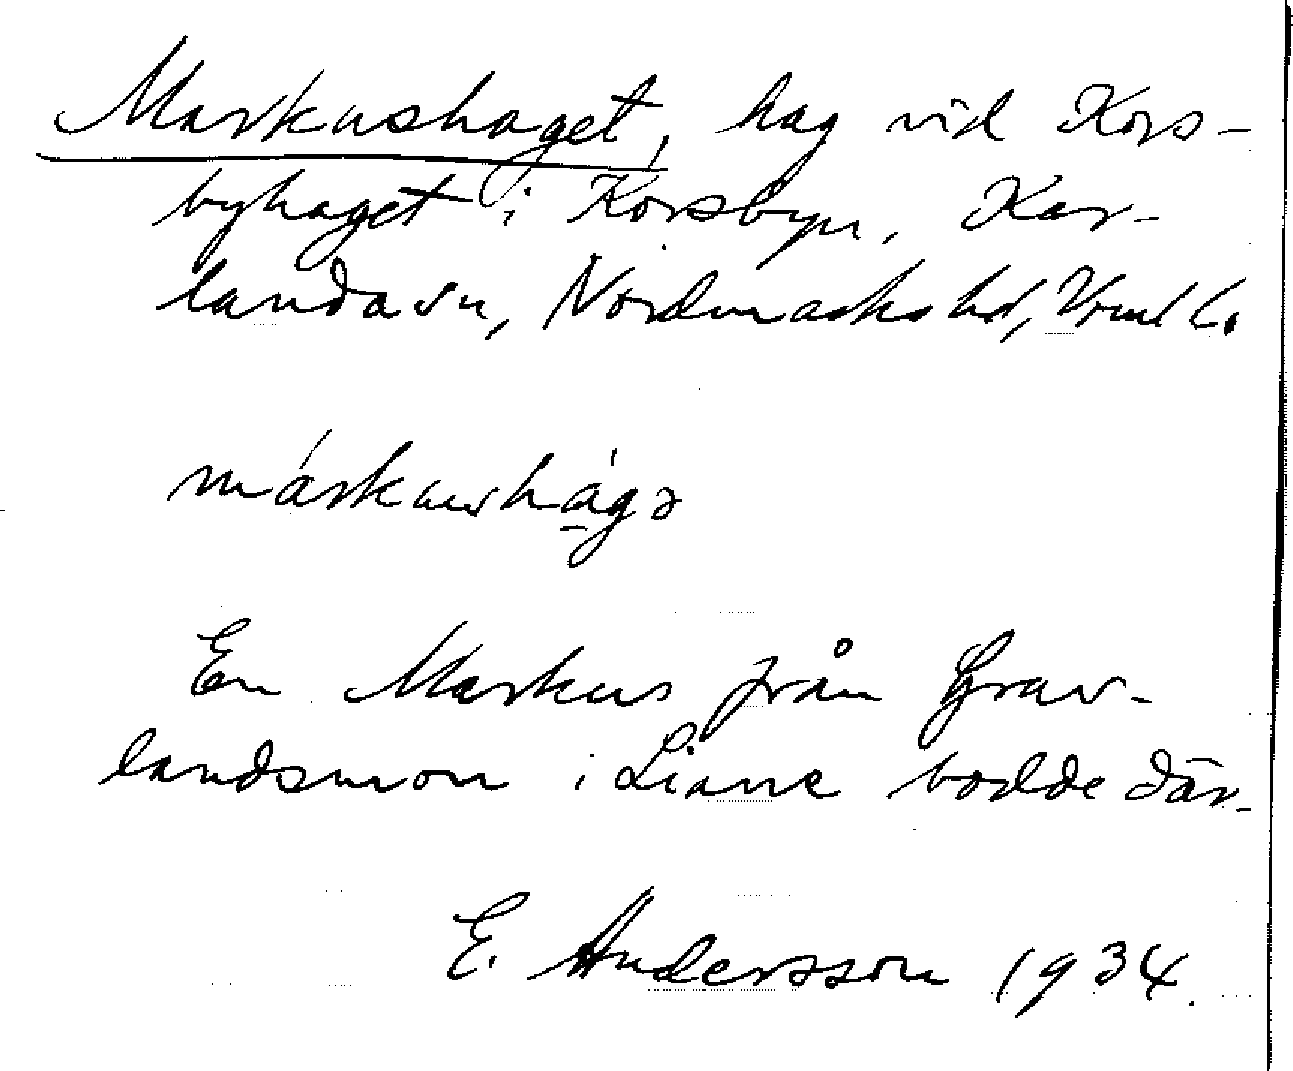 Markushaget, hag vid Kors-
byhaget i Korsbyn, Kar-
landa sn, Nordmarks hd, Vrml l.
márkushágə
En Markus från Grav-
landsmon i Liane bodde där.
E. Andersson 1934.